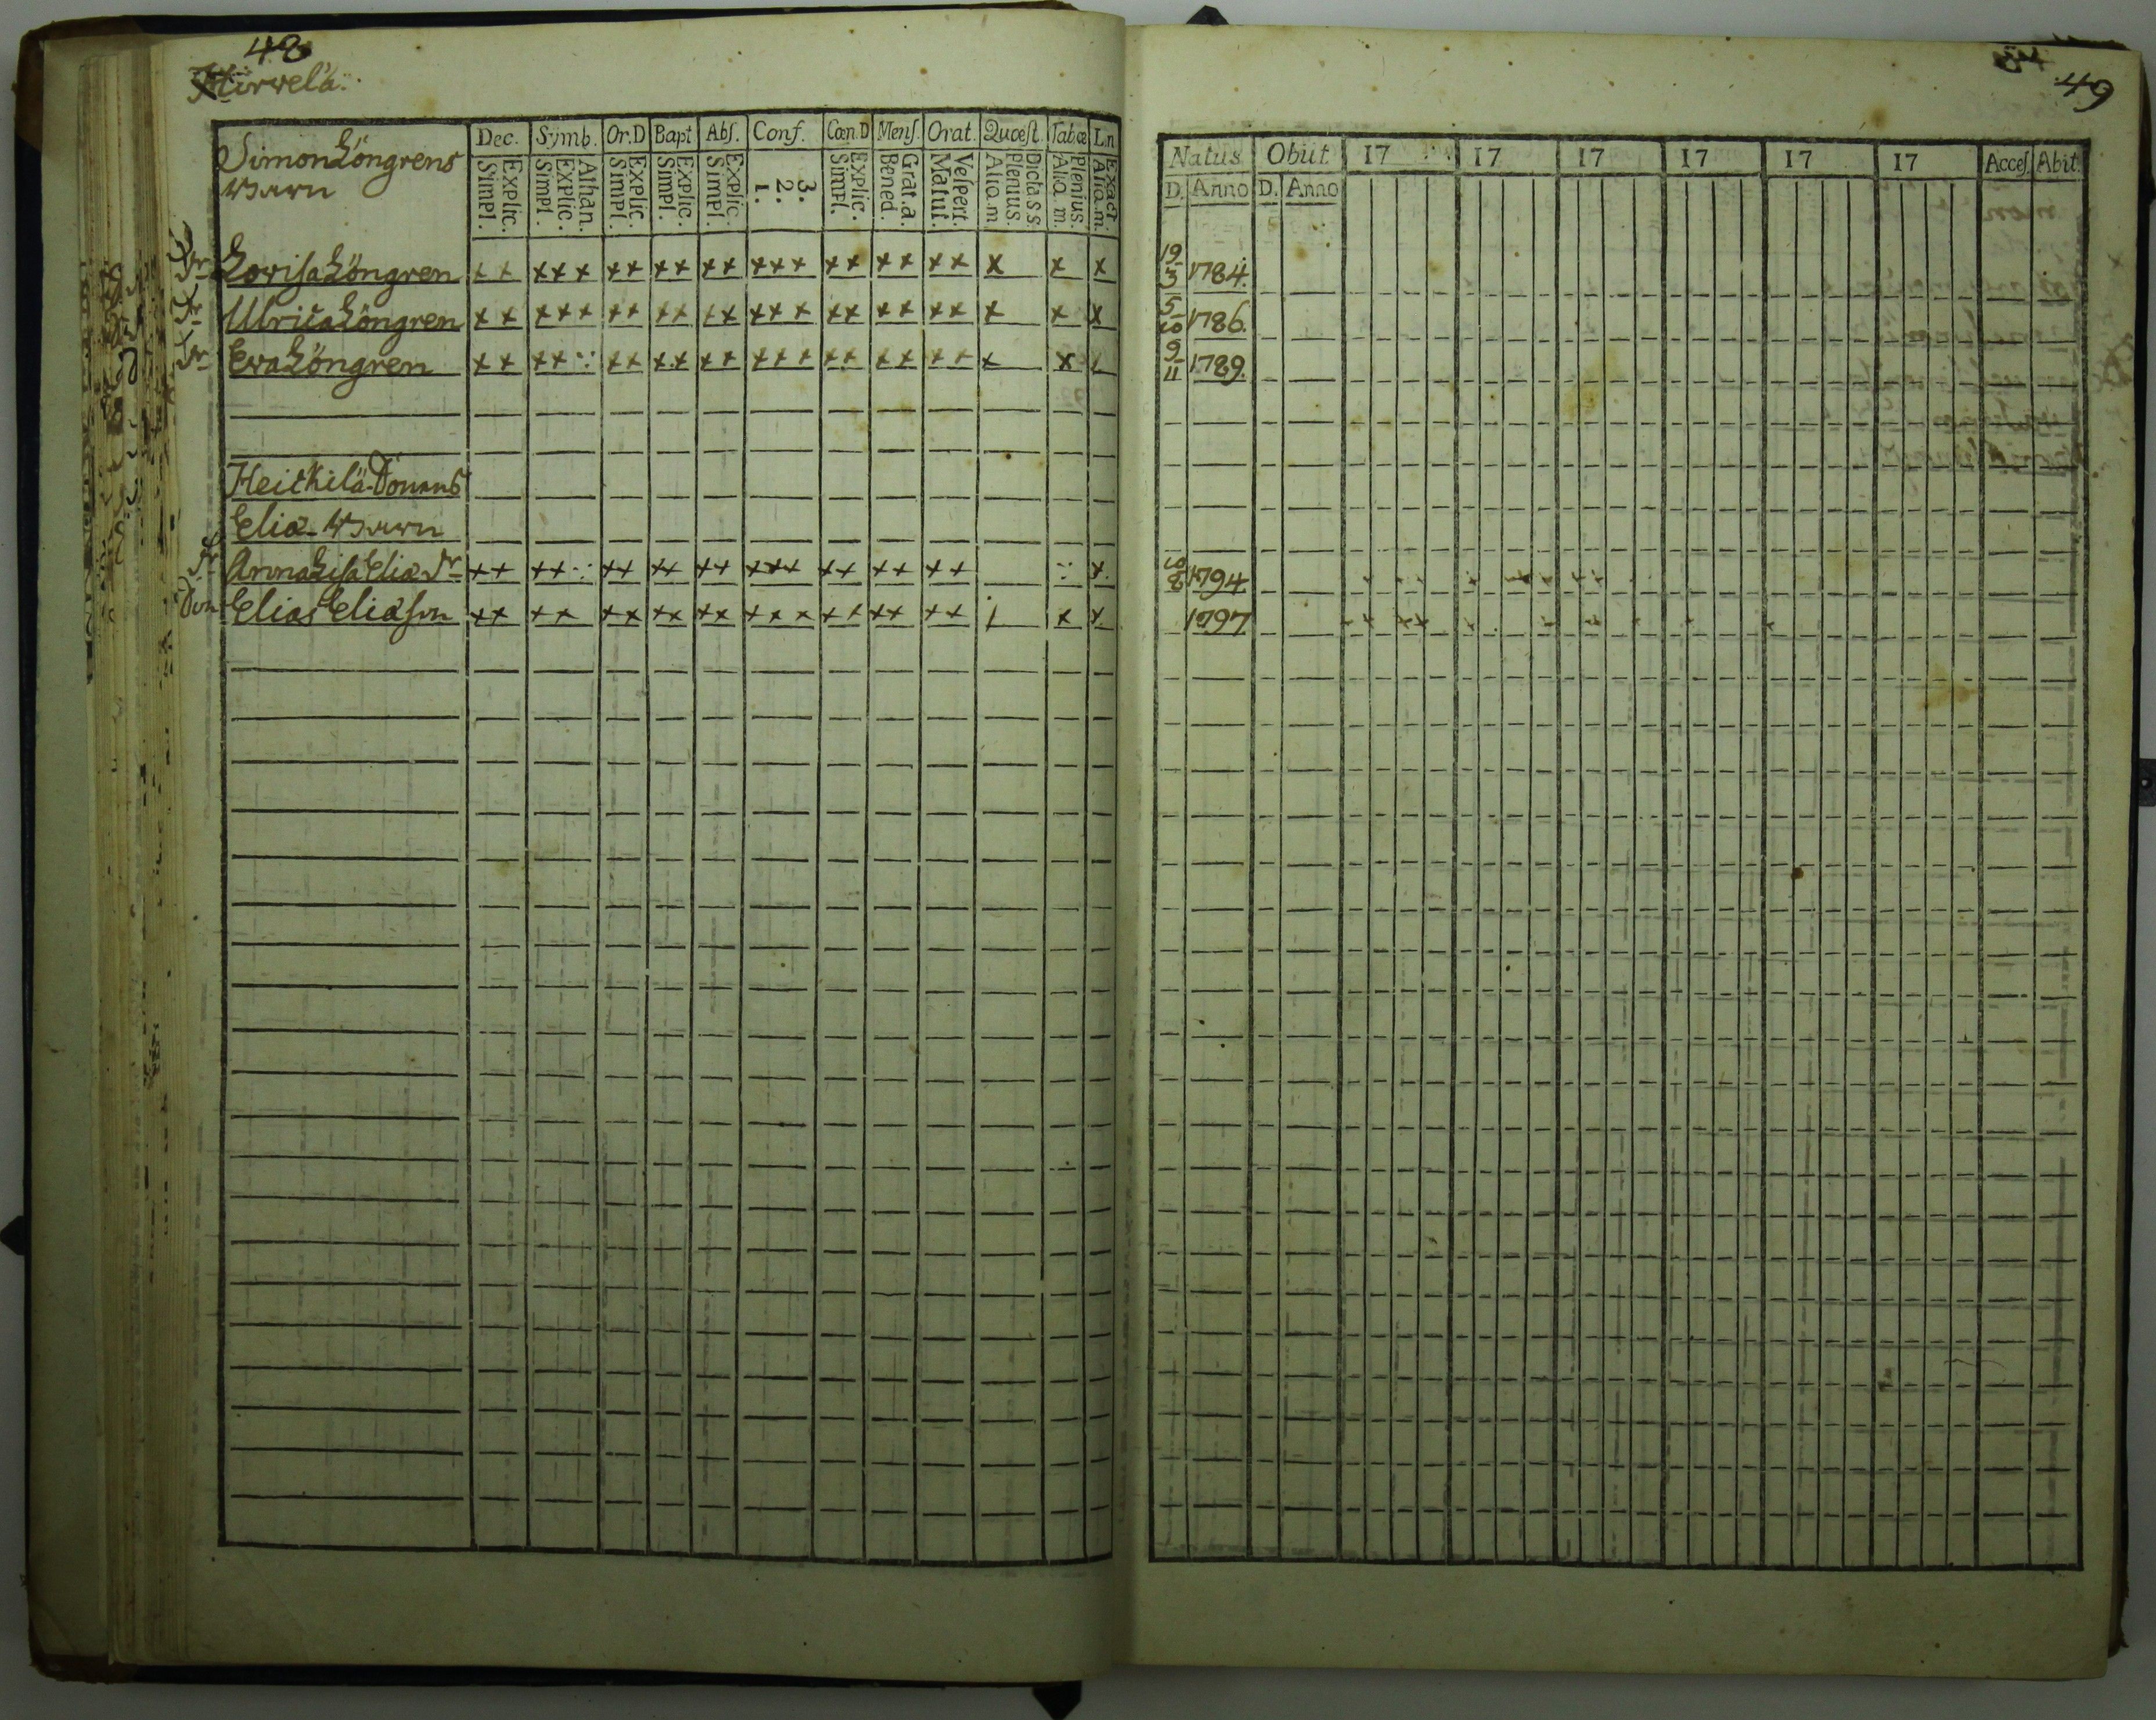 48
49
Hirvelä.
Dec. Symb. Or.D Bapt Abs. Conf. Cœn.D Mens. Orat. Quœst. Tabœ L.n
Simpl. Explic. Simpl. Explic. Athan. Simpl. Explic. Simpl. Explic. Simpl. Explic. 1. 2. 3. Simpl. Explic. Bened. Grat.a. Matut. Vespert. Aliq.m Plenius. Dicta s.s. Aliq.m. Plenius. Aliq.m. Exact
Natus Obiit 17 17 17 17 17 17 Acces. Abit.
D. Anno D. Anno
Simon Löngrens
Barn
Dr Lovisa Löngren ×× ××× ×× ×× ×× ××× ×× ×× ×× × × × 19/3 1784.
Dr Ulrica Löngren ×× ××× ×× ×× ×× ××× ×× ×× ×× × × × 5/10 1786.
Dr Eva Löngren ×× ×× ×× ×× ×× ××× ×× ×× ×× × × 9/11 1789.
Heickilä Sonens
Eliæ Barn
Dr Anna Lisa Eliæ Dr ×× ×× ×× ×× ×× ××× ×× ×× ×× × 10/8 1794
Son Elias Eliæson ×× ×× ×× ×× ×× ××× ×× ×× ×× × × 1797